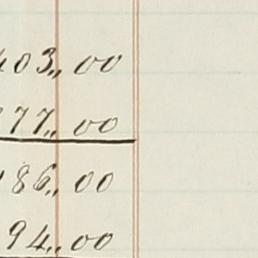 403,,00
77,,00
86,,00
94,,00